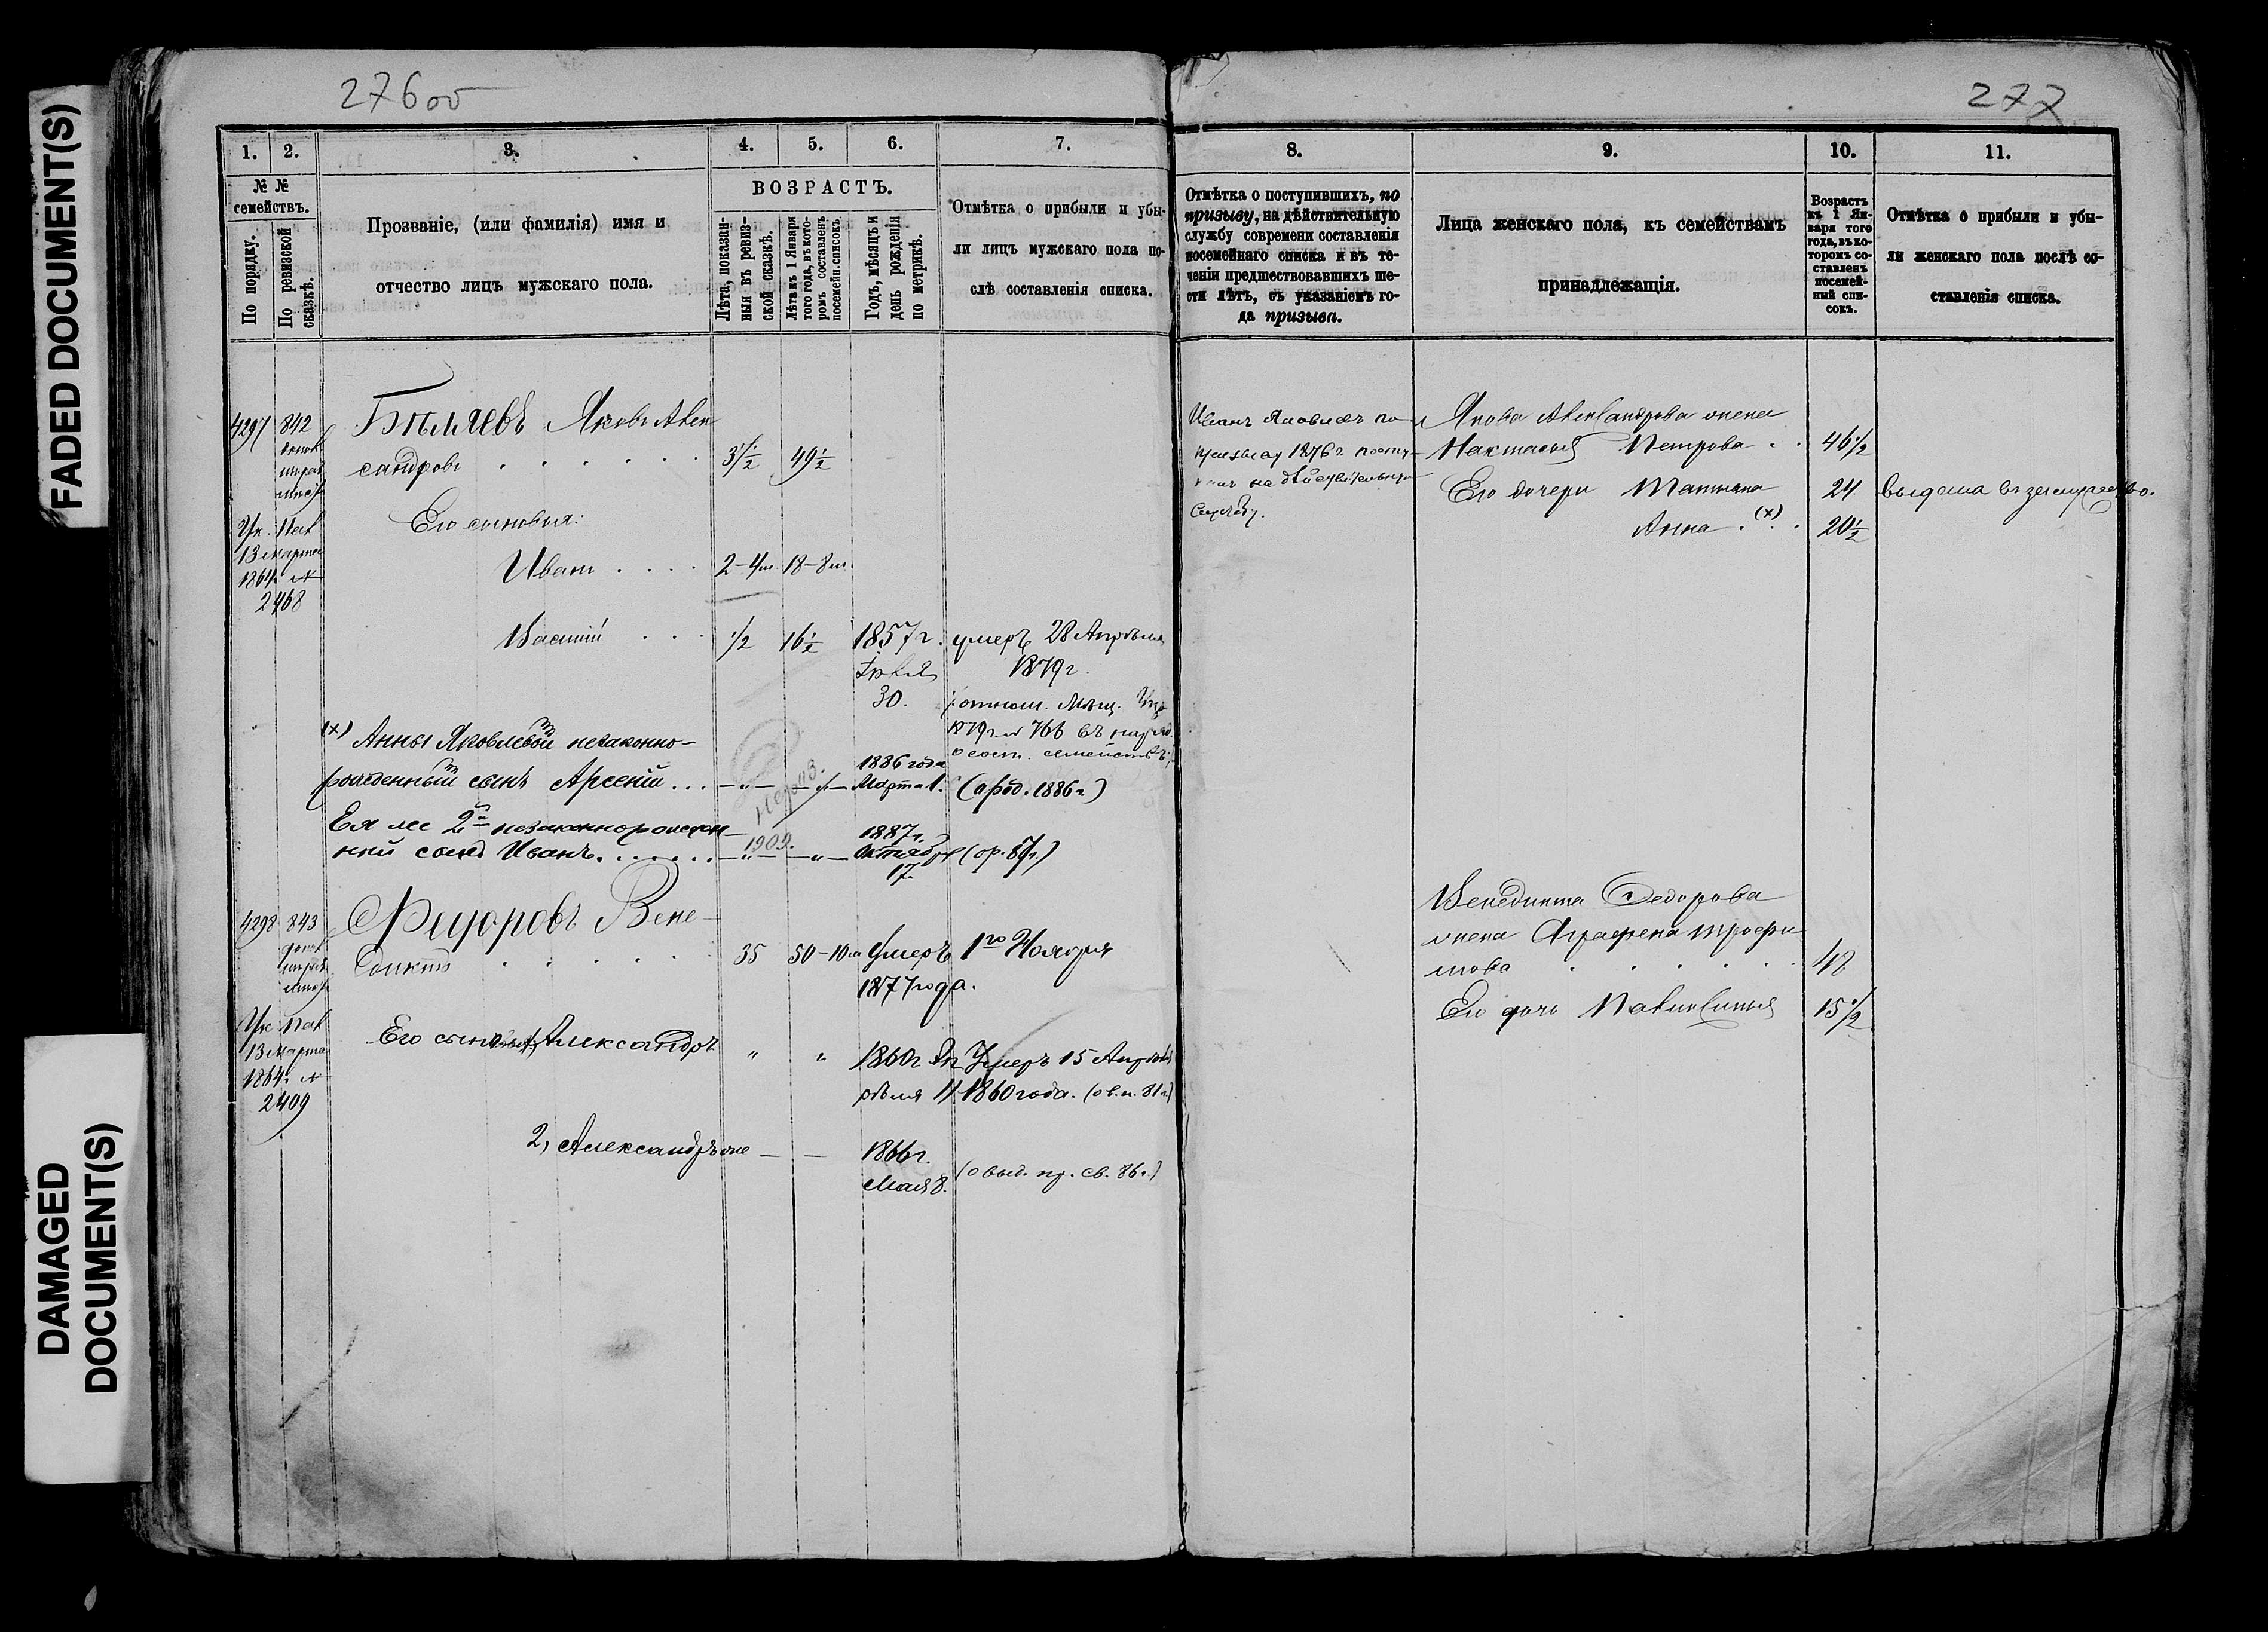 FADED DOCUMENT(S)
DAMAGED
DOCUMENT(S)
276 об
1. 2. 3. 4. 5. 6. 7.
№ №
семействъ.
По порядку.
По ревизской
сказкѣ.
Прозваніе, (или фамилія) имя и
отчество лицъ мужскаго пола.
ВОЗРАСТЪ.
Лѣта, показан-
ныя въ ревиз-
ской сказкѣ.
Лѣта къ 1 Января
того года, въ кото-
ромъ составленъ
посемейн. списокъ.
Годъ, мѣсяцъ и
день рожденія
по метрикѣ.
Отмѣтка о прибыли и убы-
ли лицъ мужскаго пола по-
слѣ составленія списка.
4297 842
Бѣляевъ Яковъ Алек
сандровъ 37½ 49½
Ук. Пал
13 марта
1864 г. №
2468
Его сыновья:
Иванъ 2-4м. 18-8м.
Василій ½ 16½ 1857 г. умеръ 28 Апрѣля
1879 г.
30.
1879 г. № 766
(х) Анны Яковлевой незаконно-
рожденный сынъ Арсеній 1886 года
Марта 1. (о род. 1886 г.)
Ея же 2й незаконнорожден
ный сынъ Иванъ 1887 г.
Октября
17.
1909.
4298 843
Фидоровъ Вене-
диктъ 35 50-10м Умеръ 1го Ноября
1877 года.
Ук. Пал
13 Марта
1864 г. №
2409
Его сынъ Александръ " " 1860 г. Ап Умеръ 15 Апрѣля
рѣля 11 1860 года.
2, Александръ же — — 1866 г.
Мая 8. (о выд. пр. св. 86 г.)
277
8. 9. 10. 11.
Отмѣтка о поступившихъ, по
призыву, на дѣйствительную
службу современи составленія
посемейнаго списка и въ те-
ченіи предшествовавшихъ ше-
сти лѣтъ, съ указаніемъ го-
да призыва.
Лица женскаго пола, къ семействамъ
принадлежащія.
Возрастъ
къ 1 Ян-
варя того
года, въ ко-
торомъ со-
ставленъ
посемей-
ный спи-
сокъ.
Отмѣтка о прибыли и убы-
ли женскаго пола послѣ со-
ставленія списка.
Иванъ Яковлевъ по
призыву 1876 г. посту-
пилъ на дѣйствительную
службу.
Якова Александрова жена
Настасья Петрова 46½
Его дочери Татьяна 24 выдана въ замужество.
Анна (х) 20½
Венедикта Федорова
жена Аграфена Трофи
мова 48
Его дочь 15½